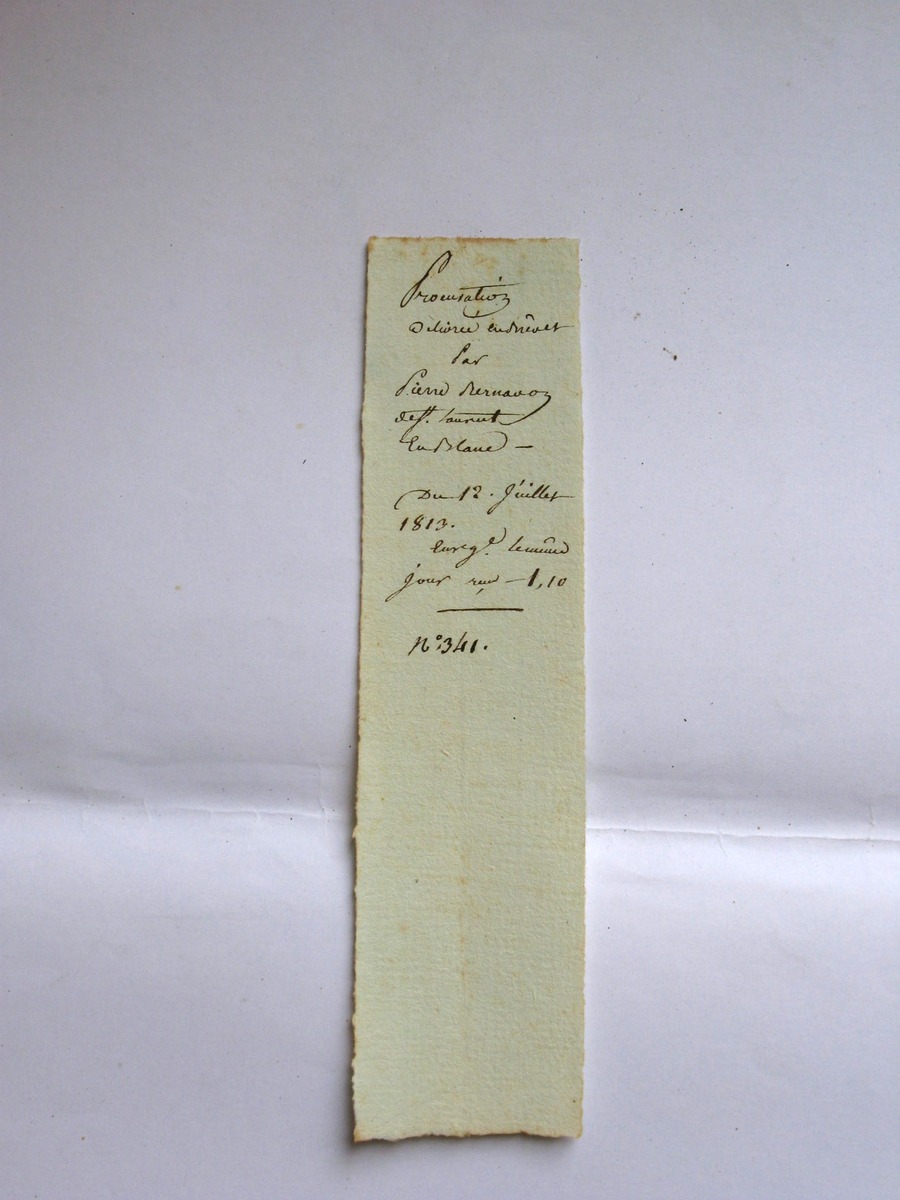 Procuration
Délivrée en Brévet
Par
Pierre Bernavon
de St. Laurent
En Blanc —
Du 12. Juillet
1813.
Enregé. le même
jour reçu — 1,10
N° 341.